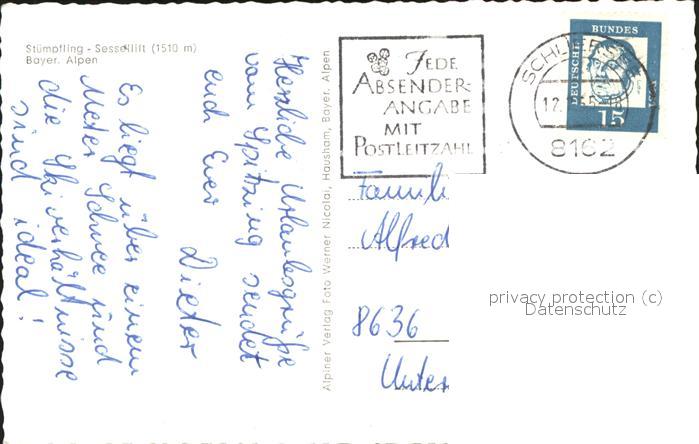 Stümpfling - Sessellift (1510 m)
Bayer. Alpen
Herzliche Urlaubsgrüße
vom Spitzing sendet
euch Euer
Dieter
Es liegt über einem
Meter Schnee und
die Skiverhältnisse
sind ideal!
Alpiner Verlag Foto Werner Nicolai, Hausham, Bayer. Alpen
JEDE
ABSENDER-
ANGABE
MIT
POSTLEITZAHL
SCHLIERSEE
12.
8162
DEUTSCHE
BUNDES
15
Famili
Alfred
8636
Unter
privacy protection (c)
Datenschutz